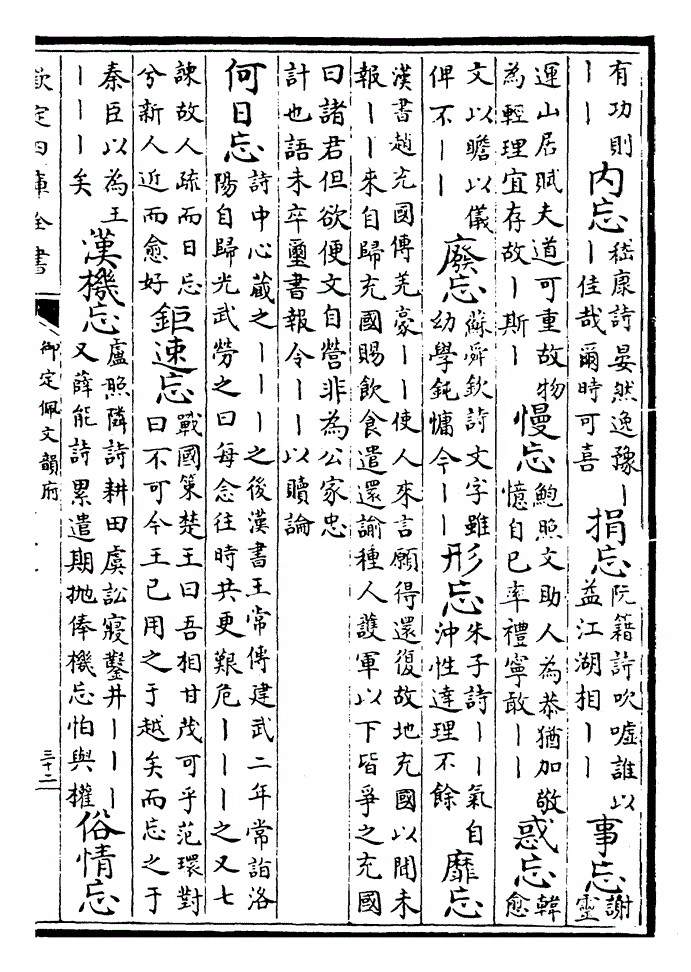 有功則
丨丨
内忘
嵇康詩晏然逸豫丨
丨佳哉爾時可喜
捐忘
阮籍詩吹嘘誰以
益江湖相丨丨
事忘
謝靈
運山居賦夫道可重故物
為輕理宜存故丨斯丨
慢忘
鮑照文助人為恭猶加敬
憶自已率禮寧敢丨丨
惑忘
韓愈
文以瞻以儀
俾不丨丨
廢忘
蘇舜欽詩文字雖
幼學鈍慵今丨丨
形忘
朱子詩丨丨氣自
沖性達理不餘
靡忘
漢書趙充國傳羌豪丨丨使人來言願得還復故地充國以聞未
報丨丨來自歸充國賜飲食遣還諭種人護軍以下皆爭之充國
曰諸君但欲便文自營非為公家忠
計也語未卒璽書報令丨丨以贖論
何日忘
詩中心藏之丨丨丨之後漢書王常傳建武二年常詣洛
陽自歸光武勞之曰每念往時共更艱危丨丨丨之又七
諫故人疏而日忘
兮新人近而愈好
鉅速忘
戰國策楚王曰吾相甘茂可乎范環對
曰不可今王已用之于越矣而忘之于
秦臣以為王
丨丨丨矣
漢機忘
盧照隣詩耕田虞訟寢鑿井丨丨丨
又薛能詩累遣期抛俸機忘怕與權
俗情忘
欽定四庫全書
御定佩文韻府
三十二